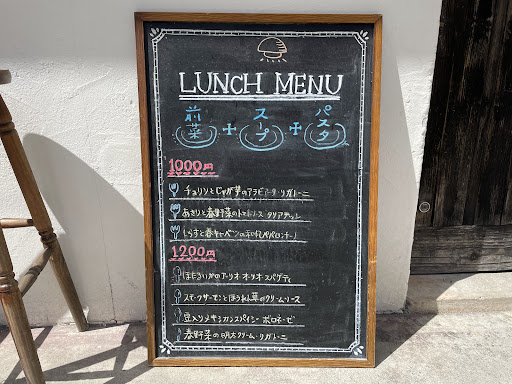 LUNCH MENU
前菜 + スープ + パスタ
1000円
チョリソとじゃが芋のアラビアータ・リガトーニ
あさりと春野菜のトマトソース タリアテッレ
しらすと春キャベツの和風ペペロンチーノ
1200円
ほたるいかのアーリオ・オーリオ スパゲティ
スモークサーモンとほうれん草のクリームソース
豆入りメキシカンスパイシー ボロネーゼ
春野菜の明太クリーム・リガトーニ